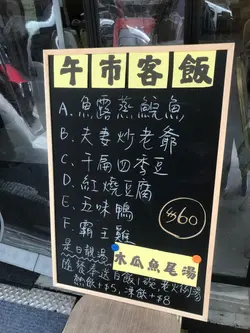 午市客飯
A. 魚露蒸鯇魚
B. 夫妻炒老爺
C. 干扁四季豆
D. 紅燒豆腐
E. 五味鴨
F. 霸王雞
$60
是日靚湯
木瓜魚尾湯
隨餐奉送白飯1碗, 老火例湯
熱飲+$5, 凍飲+$8